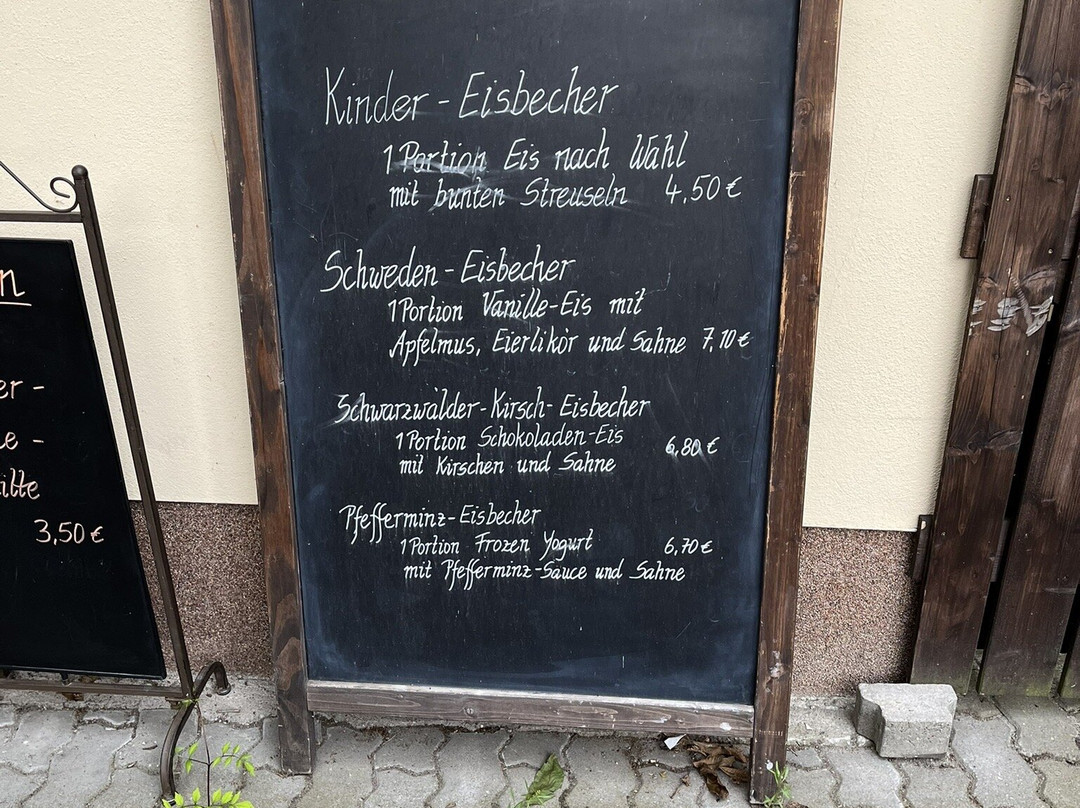 Kinder - Eisbecher
1 Portion Eis nach Wahl
mit bunten Streuseln 4,50 €
Schweden - Eisbecher
1 Portion Vanille-Eis mit
Apfelmus, Eierlikör und Sahne 7,10 €
Schwarzwälder-Kirsch-Eisbecher
1 Portion Schokoladen-Eis
mit Kirschen und Sahne 6,80 €
Pfefferminz-Eisbecher
1 Portion Frozen Yogurt 6,70 €
mit Pfefferminz-Sauce und Sahne
3,50 €